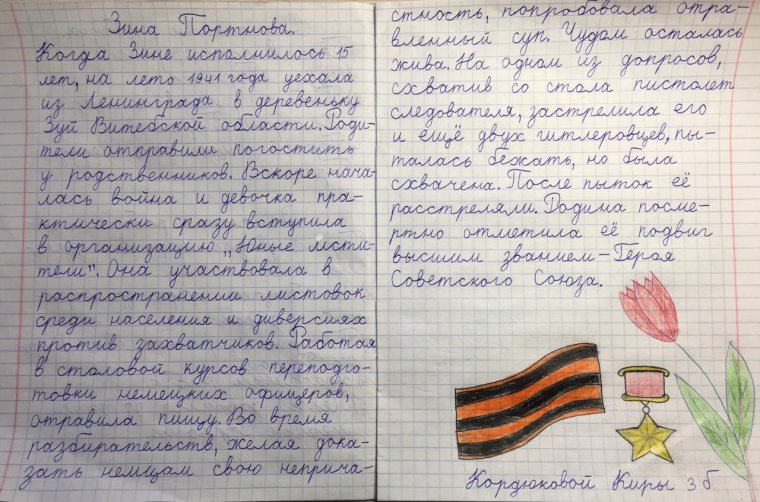 Зина Портнова.
Когда Зине исполнилось 15
лет, на лето 1941 года уехала
из Ленинграда в деревеньку
Зуй Витебской области. Роди-
тели отправили погостить
у родственников. Вскоре нача-
лась война и девочка пра-
ктически сразу вступила
в организацию „Юные мсти-
тели". Она участвовала в
распространении листовок
среди населения и диверсиях
против захватчиков. Работая
в столовой курсов переподго-
товки немецких офицеров,
отравила пищу. Во время
разбирательств, желая дока-
зать немцам свою неприча-
стность, попробовала отра-
вленный суп. Чудом осталась
жива. На одном из допросов,
схватив со стола пистолет
следователя, застрелила его
и ещё двух гитлеровцев, пы-
талась бежать, но была
схвачена. После пыток её
расстреляли. Родина посме-
ртно отметила её подвиг
высшим званием – Героя
Советского Союза.
Кордюковой Киры 3б